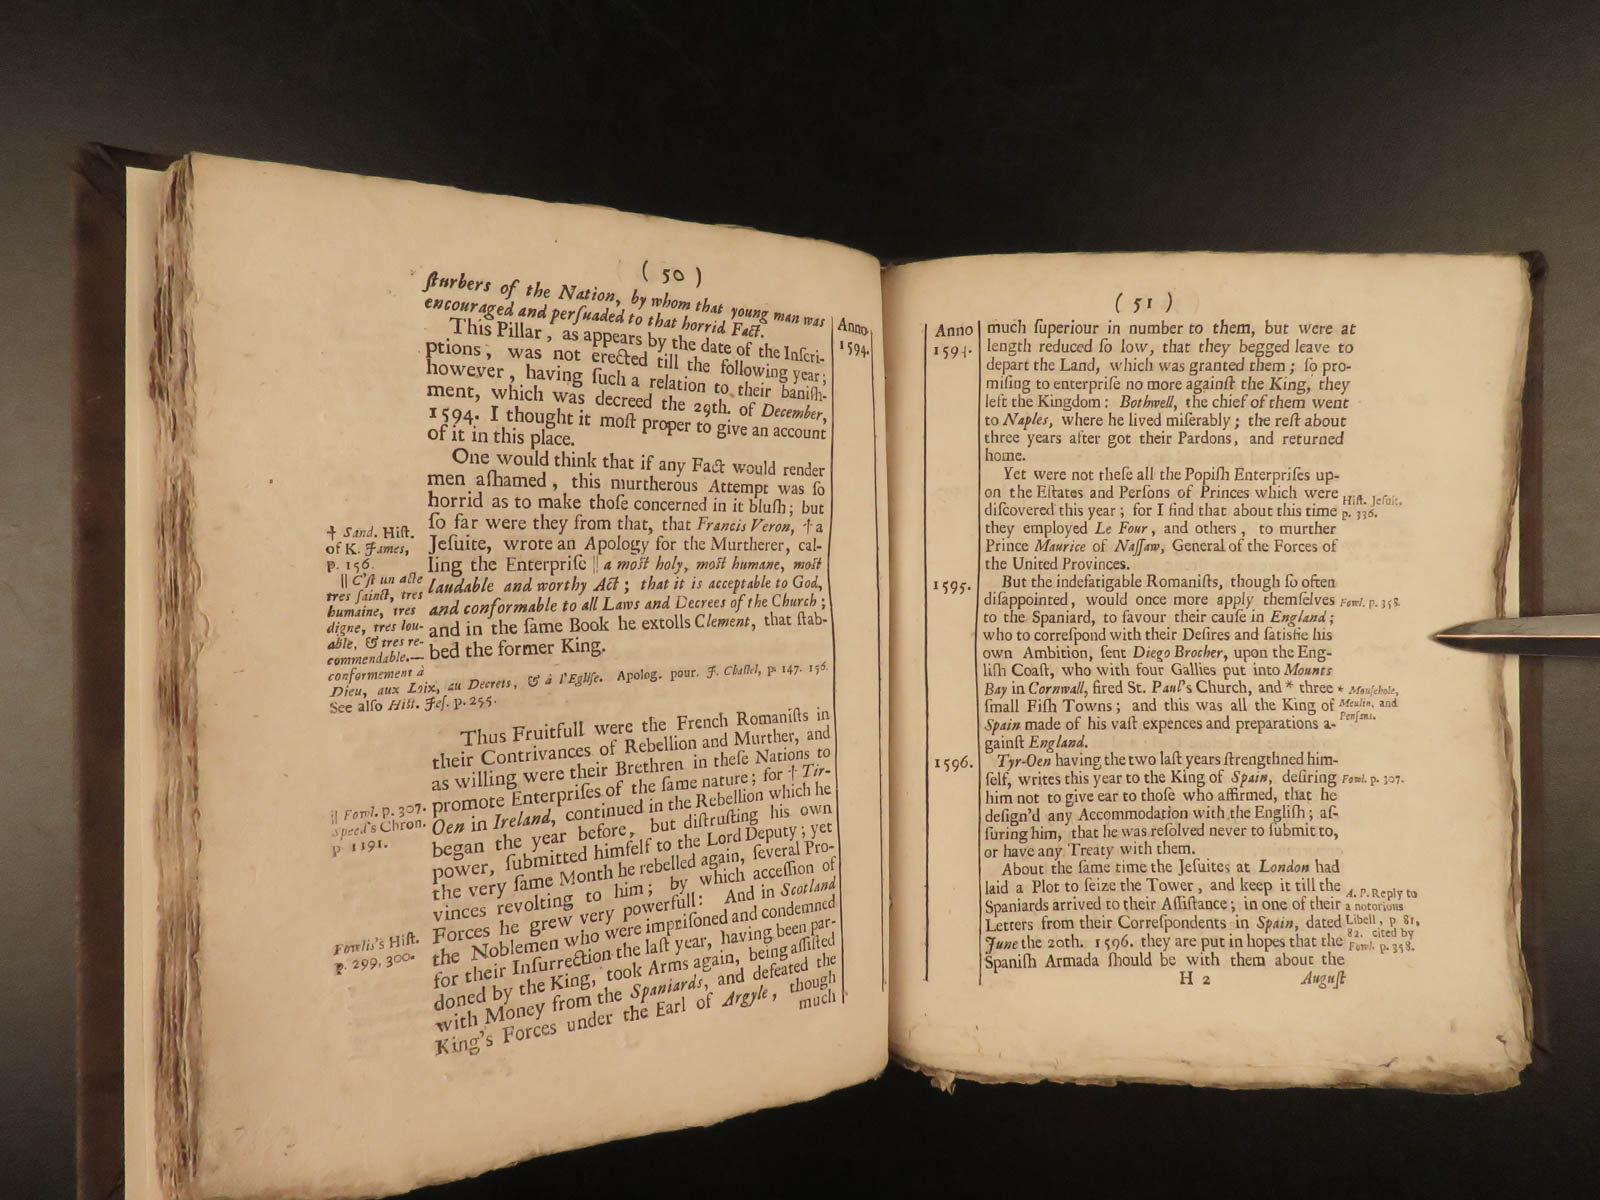 ( 50 )
ſturbers of the Nation, by whom that young man was
encouraged and perſuaded to that horrid Fact.
Anno
1594.
This Pillar, as appears by the date of the Inſcri-
ptions, was not erected till the following year;
however, having ſuch a relation to their baniſh-
ment, which was decreed the 29th. of December,
1594. I thought it moſt proper to give an account
of it in this place.
One would think that if any Fact would render
men aſhamed, this murtherous Attempt was ſo
horrid as to make thoſe concerned in it bluſh; but
ſo far were they from that, that Francis Veron, † a
Jeſuite, wrote an Apology for the Murtherer, cal-
ling the Enterpriſe || a moſt holy, moſt humane, moſt
laudable and worthy Act; that it is acceptable to God,
and conformable to all Laws and Decrees of the Church;
and in the ſame Book he extolls Clement, that ſtab-
bed the former King.
† Sand. Hiſt.
of K. James,
p. 156.
|| C'ſt un acte
tres ſainct, tres
humaine, tres
digne, tres lou-
able, & tres re-
commendable.—
conformement à
Dieu, aux Loix, au Decrets, & à l'Egliſe. Apolog. pour. J. Chaſtel, p. 147. 156.
See alſo Hiſt. Jeſ. p. 255.
Thus Fruitfull were the French Romaniſts in
their Contrivances of Rebellion and Murther, and
as willing were their Brethren in theſe Nations to
promote Enterpriſes of the ſame nature; for † Tir-
Oen in Ireland, continued in the Rebellion which he
began the year before, but diſtruſting his own
power, ſubmitted himſelf to the Lord Deputy; yet
the very ſame Month he rebelled again, ſeveral Pro-
vinces revolting to him; by which acceſſion of
Forces he grew very powerfull: And in Scotland
the Noblemen who were impriſoned and condemned
for their Inſurrection the laſt year, having been par-
doned by the King, took Arms again, being aſſiſted
with Money from the Spaniards, and defeated the
King's Forces under the Earl of Argyle, though
much
|| Fowl. p. 307.
Speed's Chron.
p 1191.
Fowlis's Hiſt.
p. 299, 300.
( 51 )
Anno
1594.
much ſuperiour in number to them, but were at
length reduced ſo low, that they begged leave to
depart the Land, which was granted them; ſo pro-
miſing to enterpriſe no more againſt the King, they
left the Kingdom: Bothwell, the chief of them went
to Naples, where he lived miſerably; the reſt about
three years after got their Pardons, and returned
home.
Yet were not theſe all the Popiſh Enterpriſes up-
on the Eſtates and Perſons of Princes which were
diſcovered this year; for I find that about this time
they employed Le Four, and others, to murther
Prince Maurice of Naſſaw, General of the Forces of
the United Provinces.
Hiſt. Jeſuit.
p. 336.
1595.
But the indefatigable Romaniſts, though ſo often
diſappointed, would once more apply themſelves
to the Spaniard, to favour their cauſe in England;
who to correſpond with their Deſires and ſatisfie his
own Ambition, ſent Diego Brocher, upon the Eng-
liſh Coaſt, who with four Gallies put into Mounts
Bay in Cornwall, fired St. Paul's Church, and * three
ſmall Fiſh Towns; and this was all the King of
Spain made of his vaſt expences and preparations a-
gainſt England.
Fowl. p. 358.
* Mouſehole,
Meulin, and
Penſans.
1596.
Tyr-Oen having the two laſt years ſtrengthned him-
ſelf, writes this year to the King of Spain, deſiring
him not to give ear to thoſe who affirmed, that he
deſign'd any Accommodation with the Engliſh; aſ-
ſuring him, that he was reſolved never to ſubmit to,
or have any Treaty with them.
Fowl. p. 307.
About the ſame time the Jeſuites at London had
laid a Plot to ſeize the Tower, and keep it till the
Spaniards arrived to their Aſſiſtance; in one of their
Letters from their Correſpondents in Spain, dated
June the 20th. 1596. they are put in hopes that the
Spaniſh Armada ſhould be with them about the
A. P. Reply to
a notorious
Libell, p 81,
82. cited by
Fowl. p. 358.
H 2
Auguſt